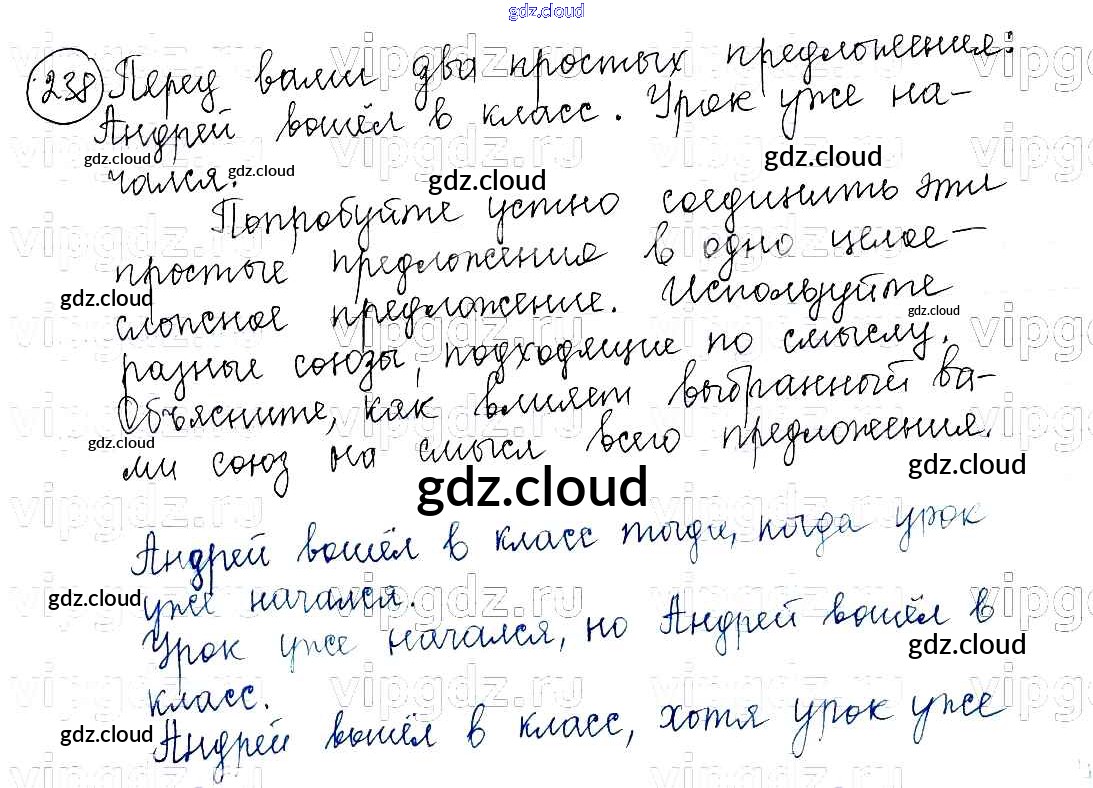 gdz.cloud
238 Перед вами два простых предложения:
Андрей вошёл в класс. Урок уже на-
чался.
Попробуйте устно соединить эти
простые предложения в одно целое —
сложное предложение. Используйте
разные союзы, подходящие по смыслу.
Объясните, как влияет выбранный ва-
ми союз на смысл всего предложения.
gdz.cloud
Андрей вошёл в класс тогда, когда урок
уже начался.
Урок уже начался, но Андрей вошёл в
класс.
Андрей вошёл в класс, хотя урок уже